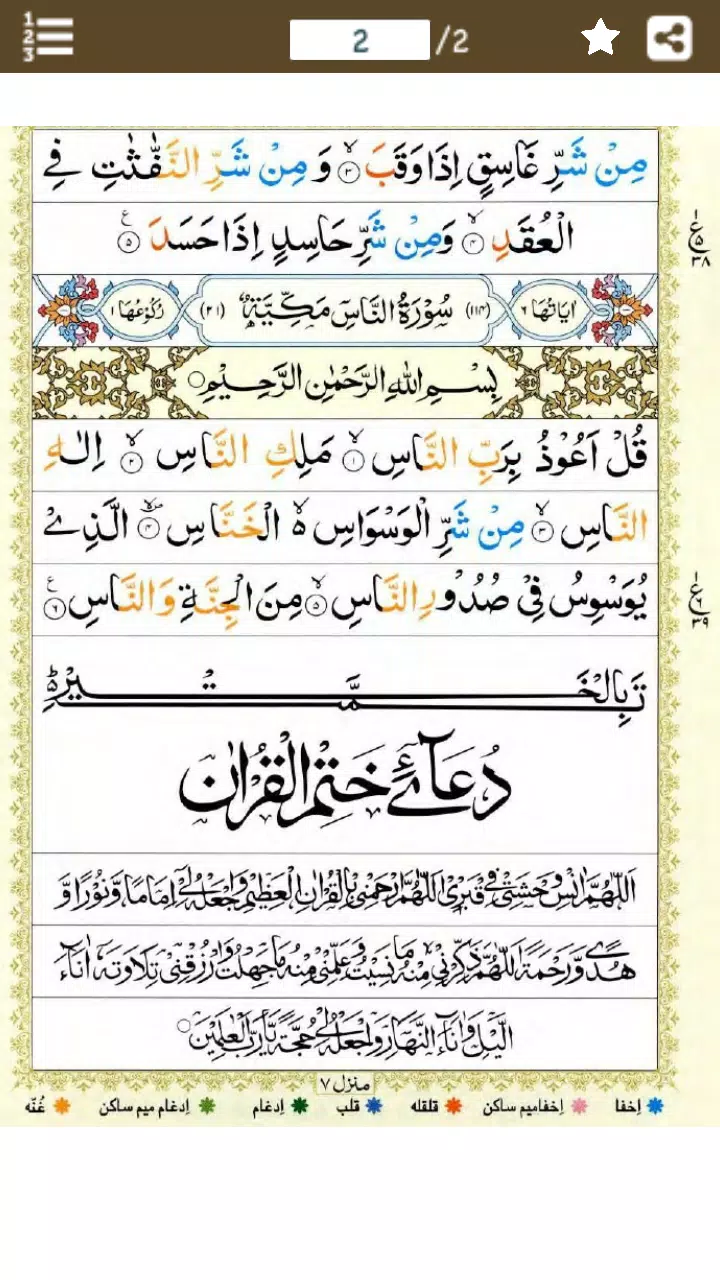 1
2
3
2 /2
مِنْ شَرِّ غَاسِقٍ اِذَا وَقَبَ ۙ﴿۳﴾ وَ مِنْ شَرِّ النَّفّٰثٰتِ فِی
الْعُقَدِ ۙ﴿۴﴾ وَمِنْ شَرِّ حَاسِدٍ اِذَا حَسَدَ ﴿۵﴾
ع ۵ ۳۸
اٰيَاتُهَا ۶ (۱۱۴) سُوْرَةُ النَّاسِ مَكِّيَّةٌ (۲۱) رُكُوْعُهَا ۱
بِسْمِ اللّٰهِ الرَّحْمٰنِ الرَّحِيْمِ
قُلْ اَعُوْذُ بِرَبِّ النَّاسِ ۙ﴿۱﴾ مَلِكِ النَّاسِ ۙ﴿۲﴾ اِلٰهِ
النَّاسِ ۙ﴿۳﴾ مِنْ شَرِّ الْوَسْوَاسِ ۵ۙ الْخَنَّاسِ ﴿۴﴾ الَّذِیْ
يُوَسْوِسُ فِیْ صُدُوْرِ النَّاسِ ۙ﴿۵﴾ مِنَ الْجِنَّةِ وَالنَّاسِ ﴿۶﴾
ع ۶ ۳۹
تَمَّتْ بِالْخَيْرِ
دُعَآئے خَتْمِ الْقُرْاٰن
اَللّٰهُمَّ اٰنِسْ وَحْشَتِیْ فِیْ قَبْرِیْ اَللّٰهُمَّ ارْحَمْنِیْ بِالْقُرْاٰنِ الْعَظِيْمِ وَاجْعَلْهُ لِیْ اِمَامًا وَّنُوْرًا وَّ
هُدًی وَّرَحْمَةً اَللّٰهُمَّ ذَكِّرْنِیْ مِنْهُ مَا نَسِيْتُ وَعَلِّمْنِیْ مِنْهُ مَا جَهِلْتُ وَارْزُقْنِیْ تِلَاوَتَهٗ اٰنَآءَ
الَّيْلِ وَاٰنَآءَ النَّهَارِ وَاجْعَلْهُ لِیْ حُجَّةً يَّارَبَّ الْعٰلَمِيْنَ
منزل ۷
اِخفا اِخفامیم ساکن قلقله قلب اِدغام اِدغام میم ساکن غُنّه